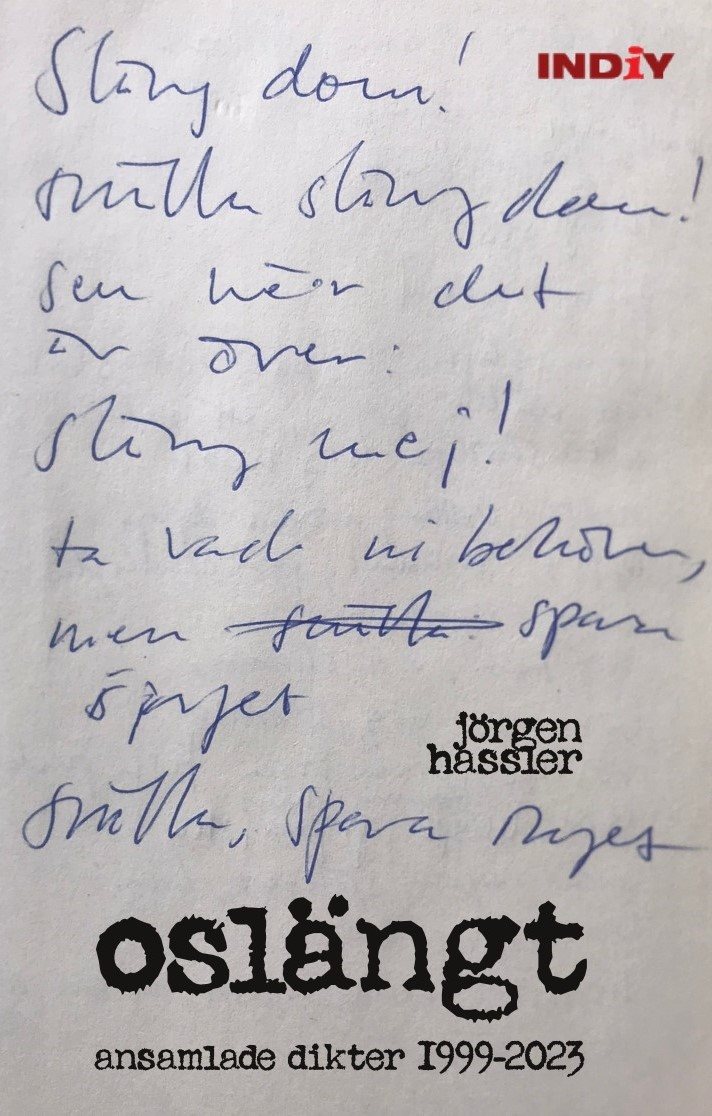 Släng dom!
INDiY
snälla släng dom!
sen när det
är över:
släng mej!
ta vad ni behöver,
men snälla spara
inget
jörgen
hassler
snälla, spara inget
oslängt
ansamlade dikter 1999-2023